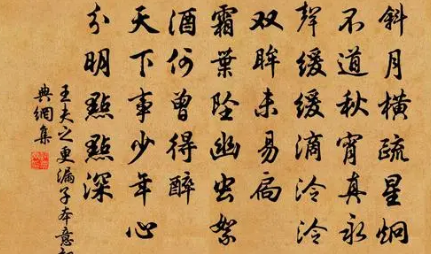 斜月橫疏星炯
不道秋宵真永
聲緩緩滴泠泠
双眸未易扃
霜葉坠幽虫絮
酒何曾得醉
天下事少年心
分明點點深
王夫之更漏子本意
典網集